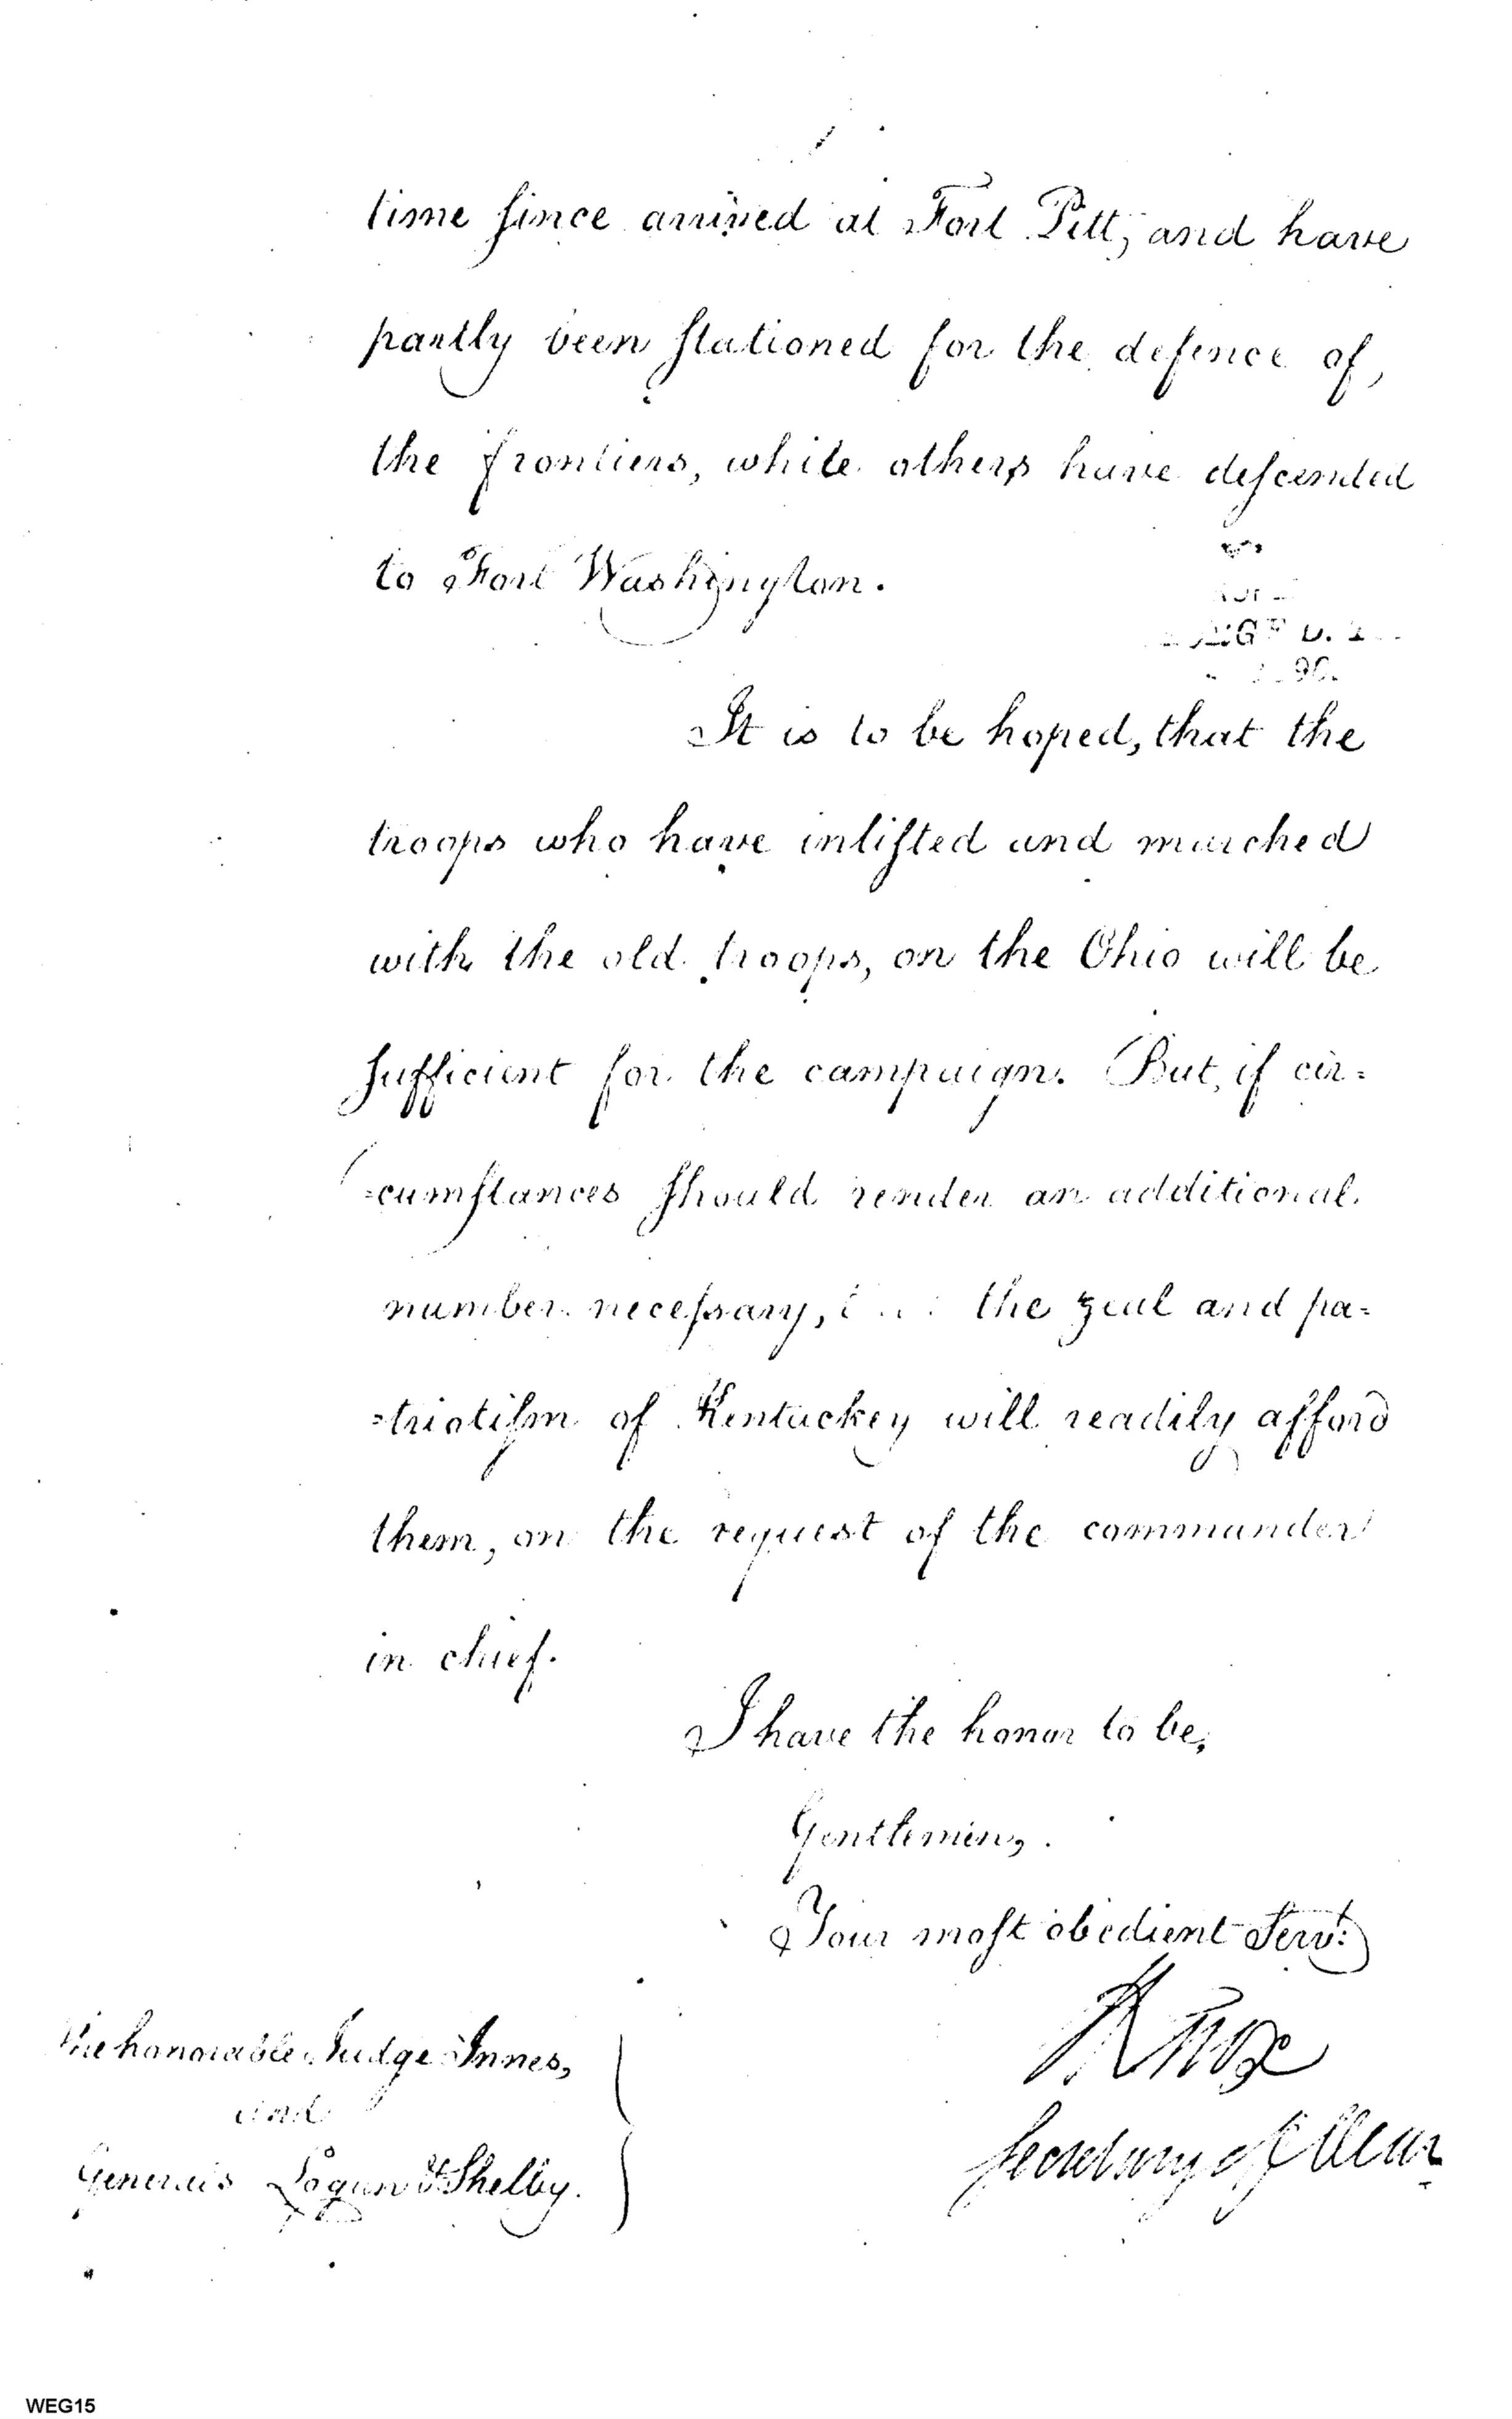 time since arrived at Fort Pitt, and have
partly been stationed for the defence of,
the frontiers, while others have descended
to Fort Washington.
It is to be hoped, that the
troops who have inlisted and marched
with the old troops, on the Ohio will be
sufficient for the campaign. But, if cir=
=cumstances should render an additional
number necessary, the zeal and pa=
=triotism of Kentuckey will readily afford
them, on the request of the commander
in chief.
I have the honor to be,
Gentlemen,
Your most obedient Servt:
HKnox
Secretary of War
The honorable Judge Innes,
and
Generals Logan & Shelby.
WEG15